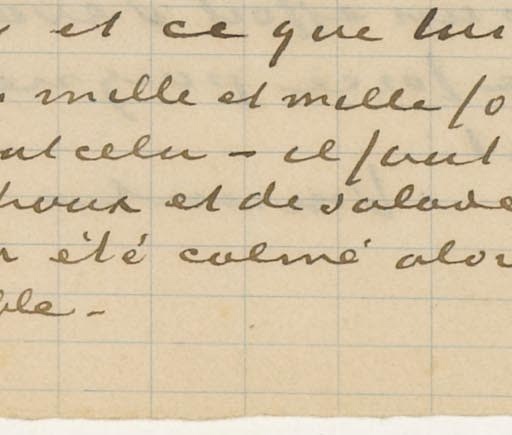 et ce que lui
mille et mille fo
ut cela - il faut
houx et de salade
été calmé alor
ble -